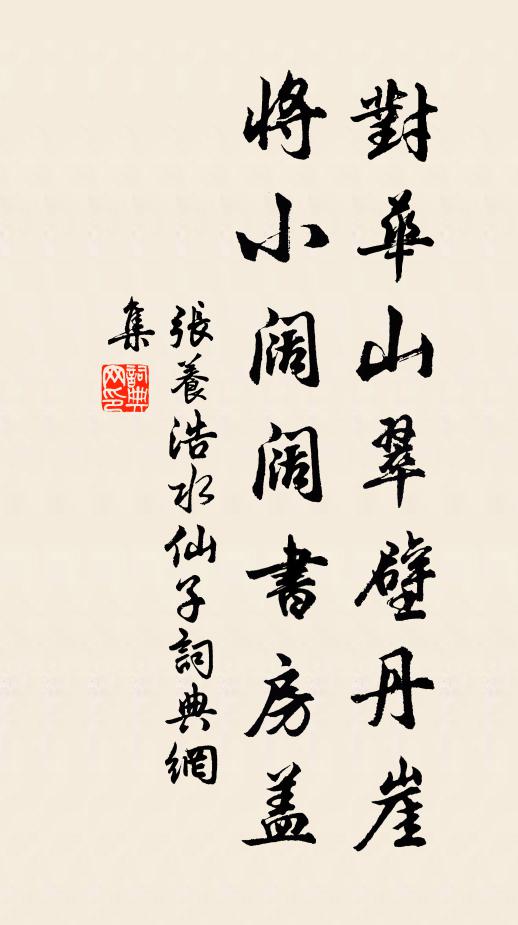 對華山翠壁丹崖
將小阔阔書房盖
張養浩水仙子詞典網
集
詞典网印